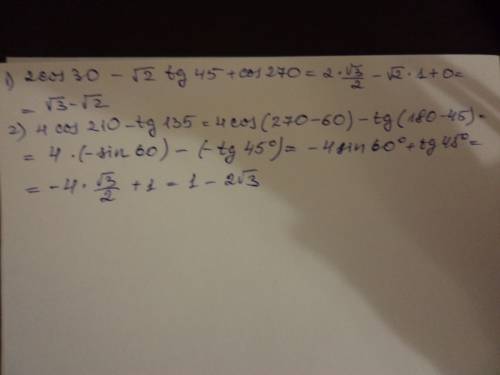 1) 2cos 30 - √2 tg 45 + cos 270 = 2 · √3/2 - √2 · 1 + 0 =
= √3 - √2
2) 4 cos 210 - tg 135 = 4 cos (270 - 60) - tg (180 - 45) =
= 4 · (-sin 60) - (-tg 45°) = -4 sin 60° + tg 45° =
= -4 · √3/2 + 1 = 1 - 2√3